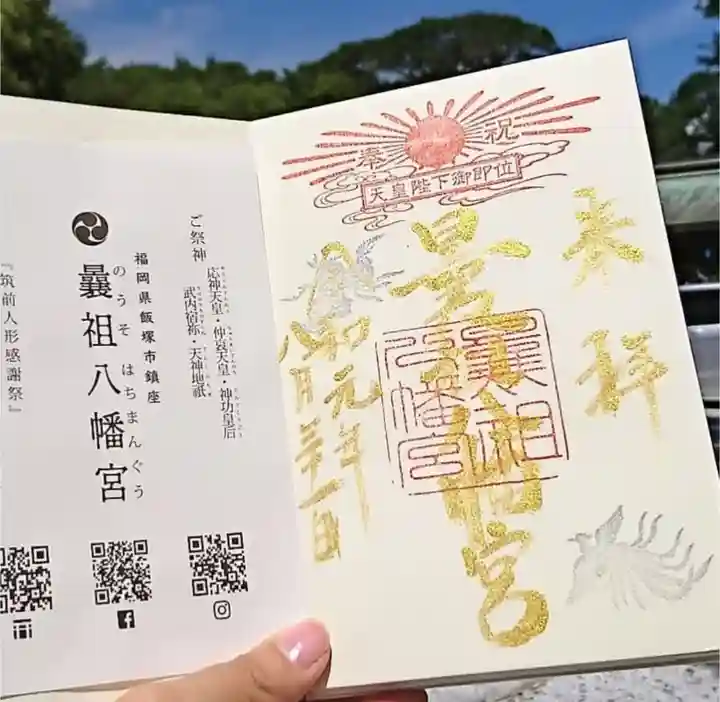 奉祝
天皇陛下御即位
奉拝
曩祖八幡宮
曩祖
八幡宮
令和元年
八月三十一日
ご祭神
応神天皇・仲哀天皇・神功皇后
武内宿祢・天神地祇
福岡県飯塚市鎮座
曩祖八幡宮
のうそ はちまんぐう
『筑前人形感謝祭』